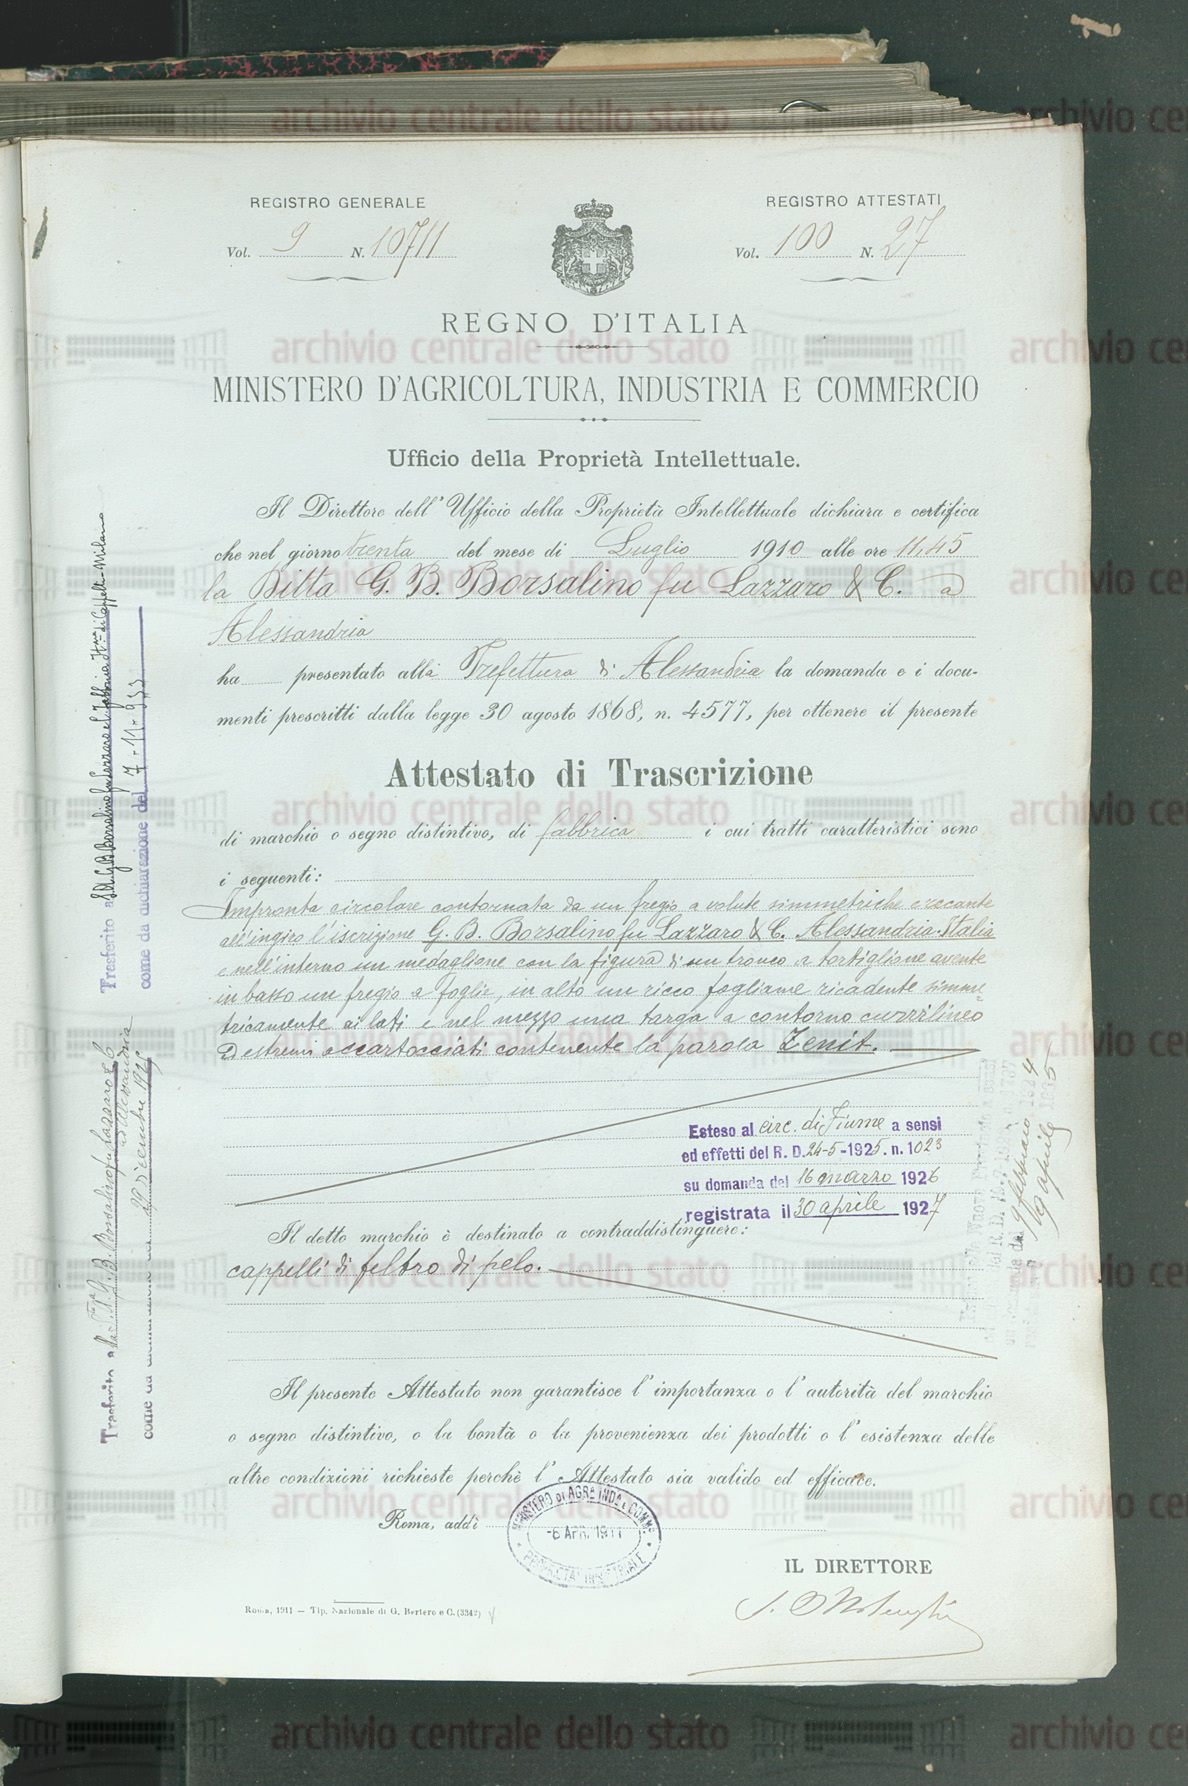 REGISTRO GENERALE
Vol. 9 N. 10711
REGISTRO ATTESTATI
Vol. 100 N. 27
REGNO D'ITALIA
MINISTERO D'AGRICOLTURA, INDUSTRIA E COMMERCIO
Ufficio della Proprietà Intellettuale.
Il Direttore dell'Ufficio della Proprietà Intellettuale dichiara e certifica
che nel giorno trenta del mese di Luglio 1910 alle ore 11,45
la Ditta G. B. Borsalino fu Lazzaro & C. a
Alessandria
ha presentato alla Prefettura di Alessandria la domanda e i docu-
menti prescritti dalla legge 30 agosto 1868, n. 4577, per ottenere il presente
Attestato di Trascrizione
di marchio o segno distintivo, di fabbrica i cui tratti caratteristici sono
i seguenti:
Impronta circolare contornata da un fregio a volute simmetriche e reccante
all'ingiro l'iscrizione G. B. Borsalino fu Lazzaro & C. Alessandria-Italia
e nell'interno un medaglione con la figura di un tronco a tortiglione avente
in basso un fregio a foglie, in alto un ricco fogliame ricadente simme=
tricamente ai lati e nel mezzo una targa a contorno curvilineo
ed estremi accartocciati contenente la parola Zenit.
Esteso al circ. di Fiume a sensi
ed effetti del R. D. 24-5-1925. n. 1023
su domanda del 16 marzo 1926
registrata il 30 aprile 1927
Il detto marchio è destinato a contraddistinguere:
cappelli di feltro di pelo.
Il presente Attestato non garantisce l'importanza o l'autorità del marchio
o segno distintivo, o la bontà o la provenienza dei prodotti o l'esistenza delle
altre condizioni richieste perchè l'Attestato sia valido ed efficace.
Roma, addì
MINISTERO DI AGR. IND. E COMM.
-6 APR. 1911
PROPRIETA' INDUSTRIALE
IL DIRETTORE
Roma, 1911 — Tip. Nazionale di G. Bertero e C. (3342)
Trasferito a S.A. G.B. Borsalino fu Lazzaro e C. Milano
come da dichiarazione del 7-11-933
Trasferito a G. B. Borsalino fu Lazzaro & C.
ad Alessandria
come da 29 Dicembre 1925
9 febbraio 1924
19 aprile 1925
archivio centrale dello stato